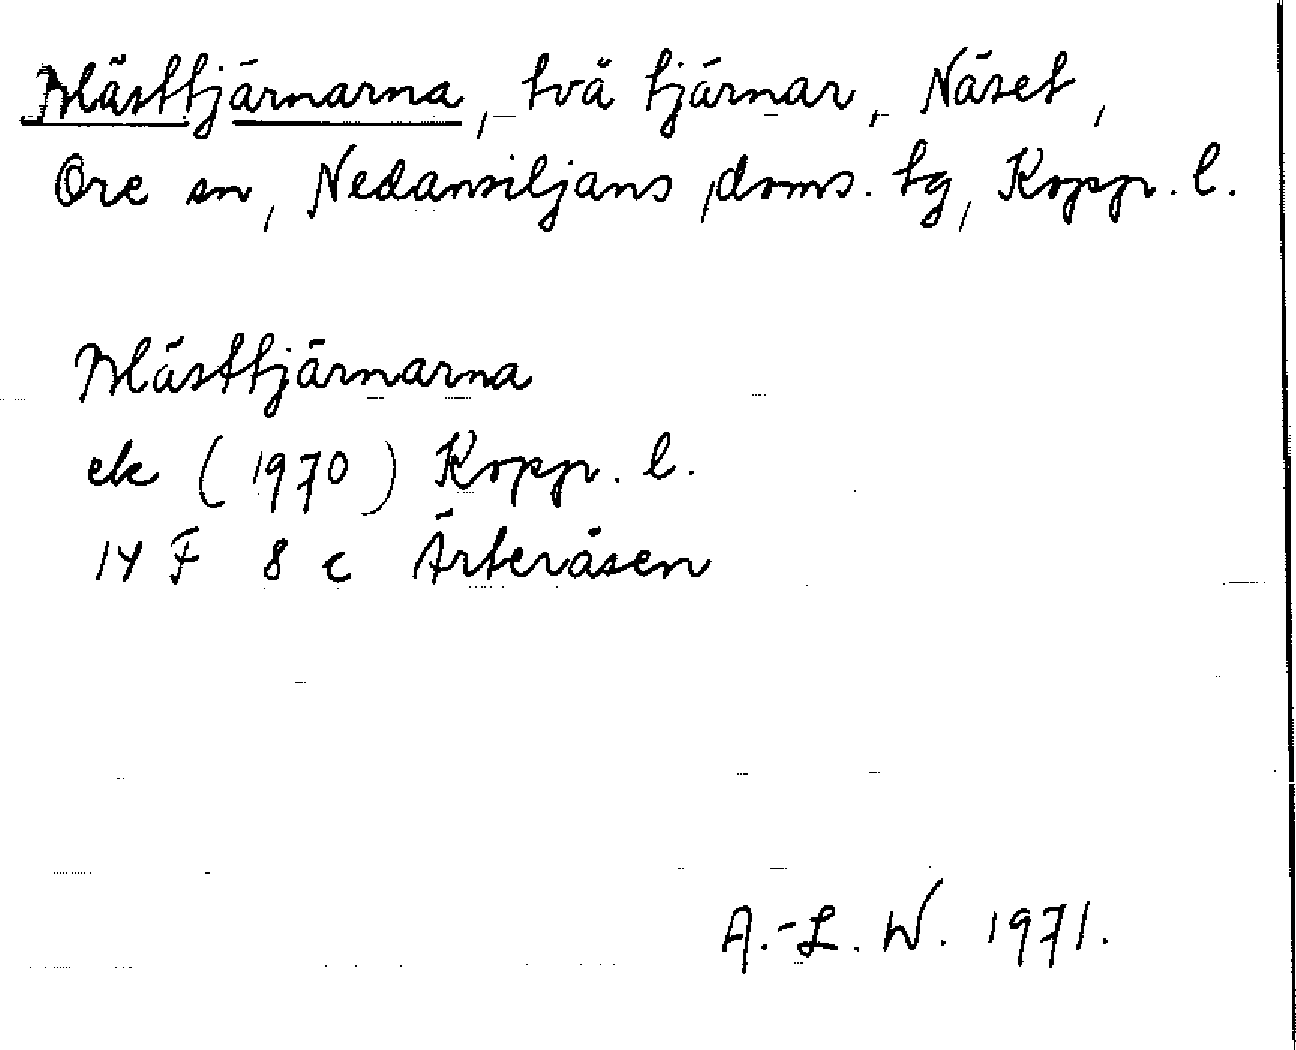 Blästtjärnarna, två tjärnar, Näset,
Ore sn, Nedansiljans doms. tg, Kopp. l.
Blästtjärnarna
ek (1970) Kopp. l.
14 F 8 c Ärteråsen
A.-L. W. 1971.